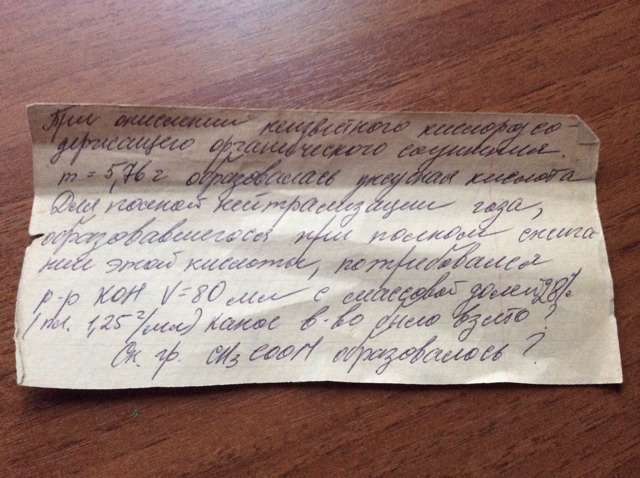 При окислении неизвестного кислородсо-
держащего органического соединения
m = 5,76 г образовалась уксусная кислота
Для полной нейтрализации газа,
образовавшегося при полном сжига-
нии этой кислоты, потребовался
р-р KOH V=80 мл с массовой долей 28%
(пл. 1,25 г/мл) какое в-во было взято?
Ск. гр. CH3COOH образовалось?